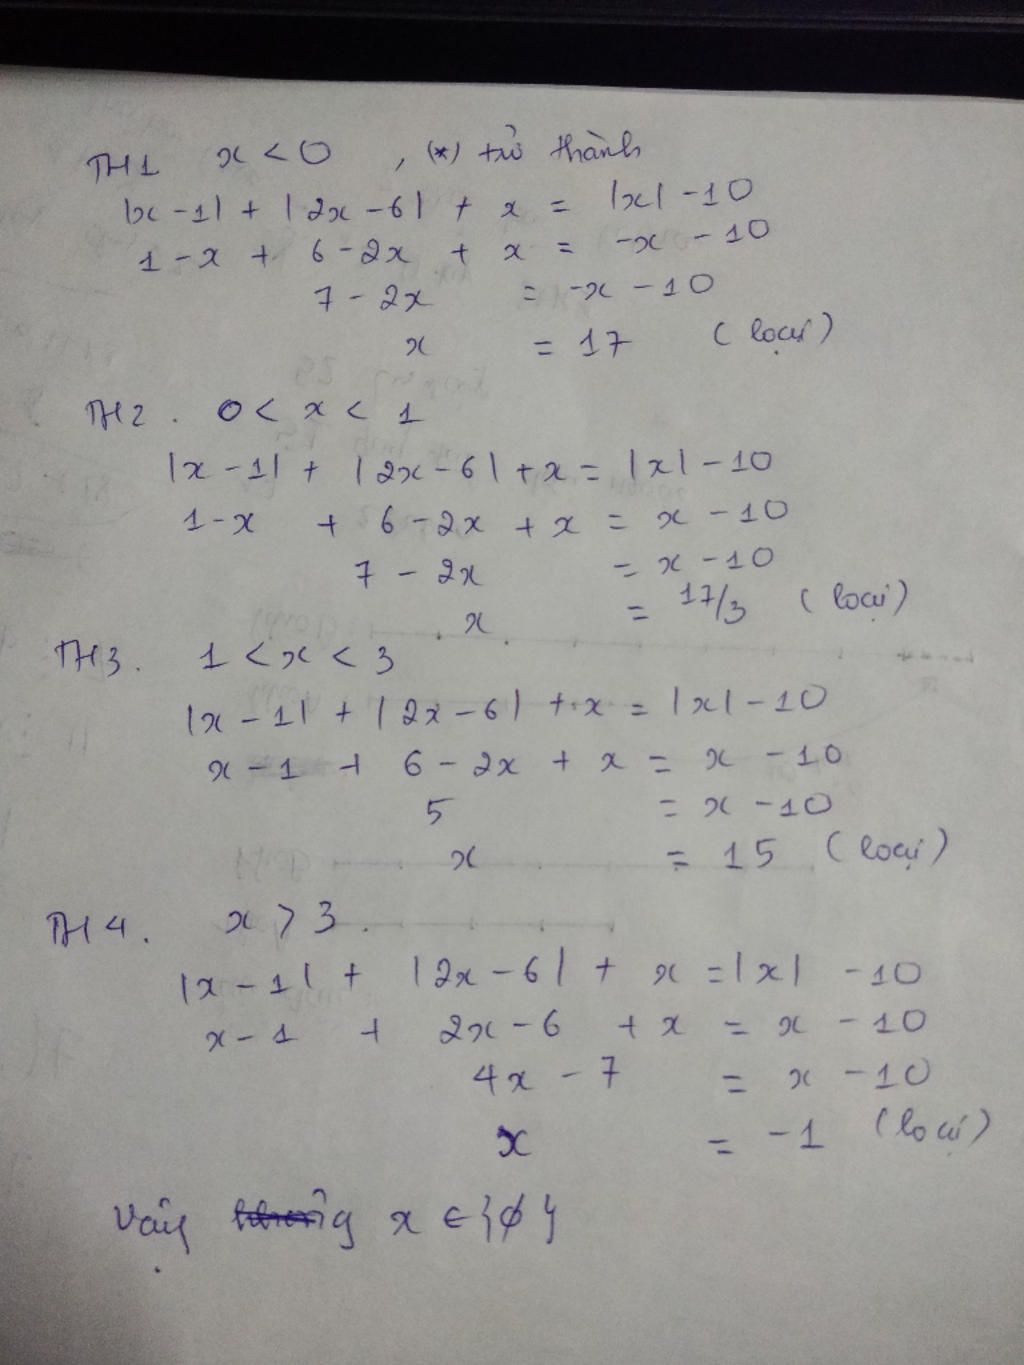 TH1 x < 0 , (*) trở thành
|x - 1| + |2x - 6| + x = |x| - 10
1 - x + 6 - 2x + x = -x - 10
7 - 2x = -x - 10
x = 17 (loại)
TH2. 0 < x < 1
|x - 1| + |2x - 6| + x = |x| - 10
1 - x + 6 - 2x + x = x - 10
7 - 2x = x - 10
x = 17/3 (loại)
TH3. 1 < x < 3
|x - 1| + |2x - 6| + x = |x| - 10
x - 1 + 6 - 2x + x = x - 10
5 = x - 10
x = 15 (loại)
TH4. x > 3.
|x - 1| + |2x - 6| + x = |x| - 10
x - 1 + 2x - 6 + x = x - 10
4x - 7 = x - 10
x = -1 (loại)
Vậy x ∈ {∅}